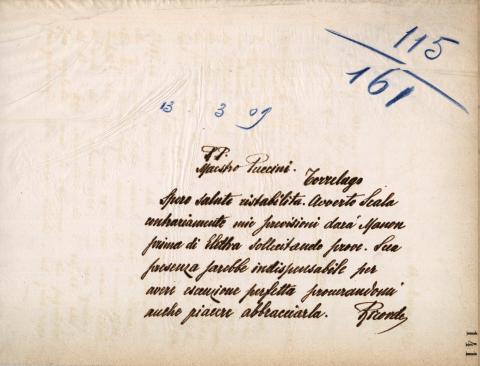 115
161
13 . 3 09
PP.
Maestro Puccini.
Torrelago
Spero salute ristabilita. Avverto Scala
contrariamente mie previsioni dará Manon
prima di Elettra sollecitando prove. Sua
presenza sarebbe indispensabile per
avere esecuzione perfetta procurandomi
anche piacere abbracciarla. Ricordi
141